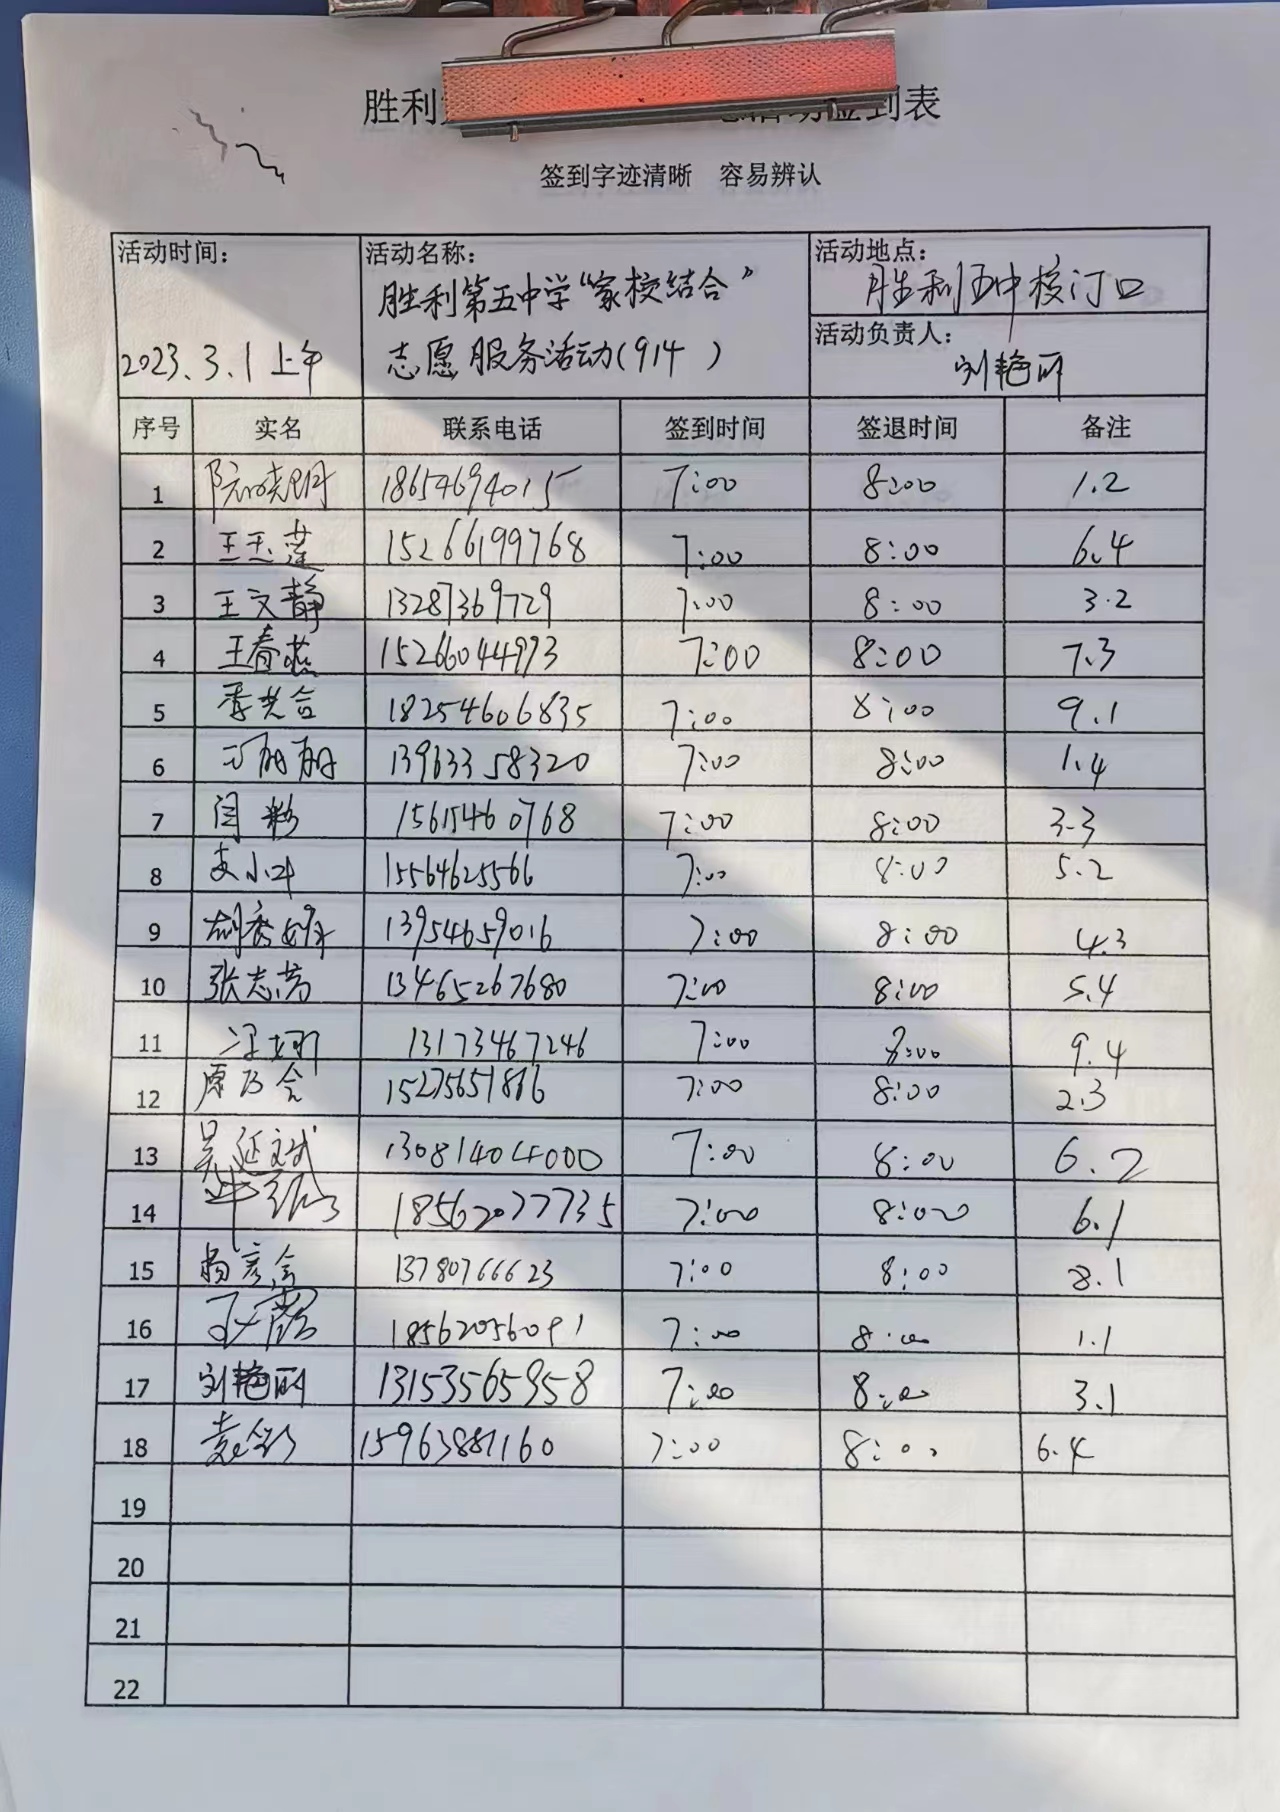 胜利 活动签到表
签到字迹清晰 容易辨认
活动时间：
2023.3.1上午
活动名称：
胜利第五中学“家校结合”
志愿服务活动（914）
活动地点：
胜利五中校门口
活动负责人：
刘艳丽
序号 实名 联系电话 签到时间 签退时间 备注
1 阮晓明 18654694015 7:00 8:00 1.2
2 王玉莲 15266199768 7:00 8:00 6.4
3 王文静 13287369729 7:00 8:00 3.2
4 王春燕 15266044993 7:00 8:00 7.3
5 18254606835 7:00 8:00 9.1
6 13963358320 7:00 8:00 1.4
7 闫粉 15615460768 7:00 8:00 3.3
8 15564625566 7:00 8:00 5.2
9 胡秀娟 13954659016 7:00 8:00 4.3
10 张志芳 13465267680 7:00 8:00 5.4
11 13173467246 7:00 8:00 9.4
12 15275651816 7:00 8:00 2.3
13 吴延斌 13081404000 7:00 8:00 6.2
14 18562077735 7:00 8:00 6.1
15 杨彦会 13780766623 7:00 8:00 8.1
16 孙霞 18562056091 7:00 8:00 1.1
17 刘艳丽 13153565958 7:00 8:00 3.1
18 15963881160 7:00 8:00 6.4
19
20
21
22